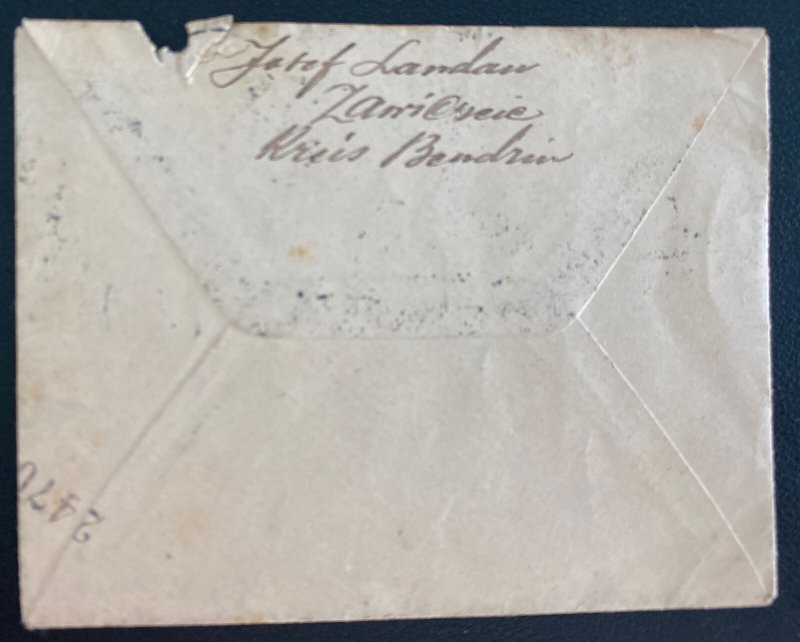 Josef Landau
Zawiercie
Kreis Bendzin
2470